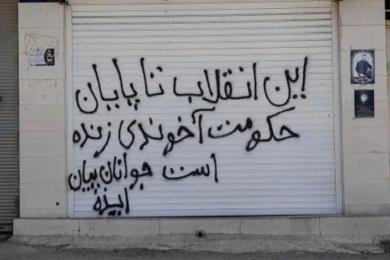 این انقلاب تا پایان
حکومت آخوندی زنده
است جوانان پیان
ابیذه